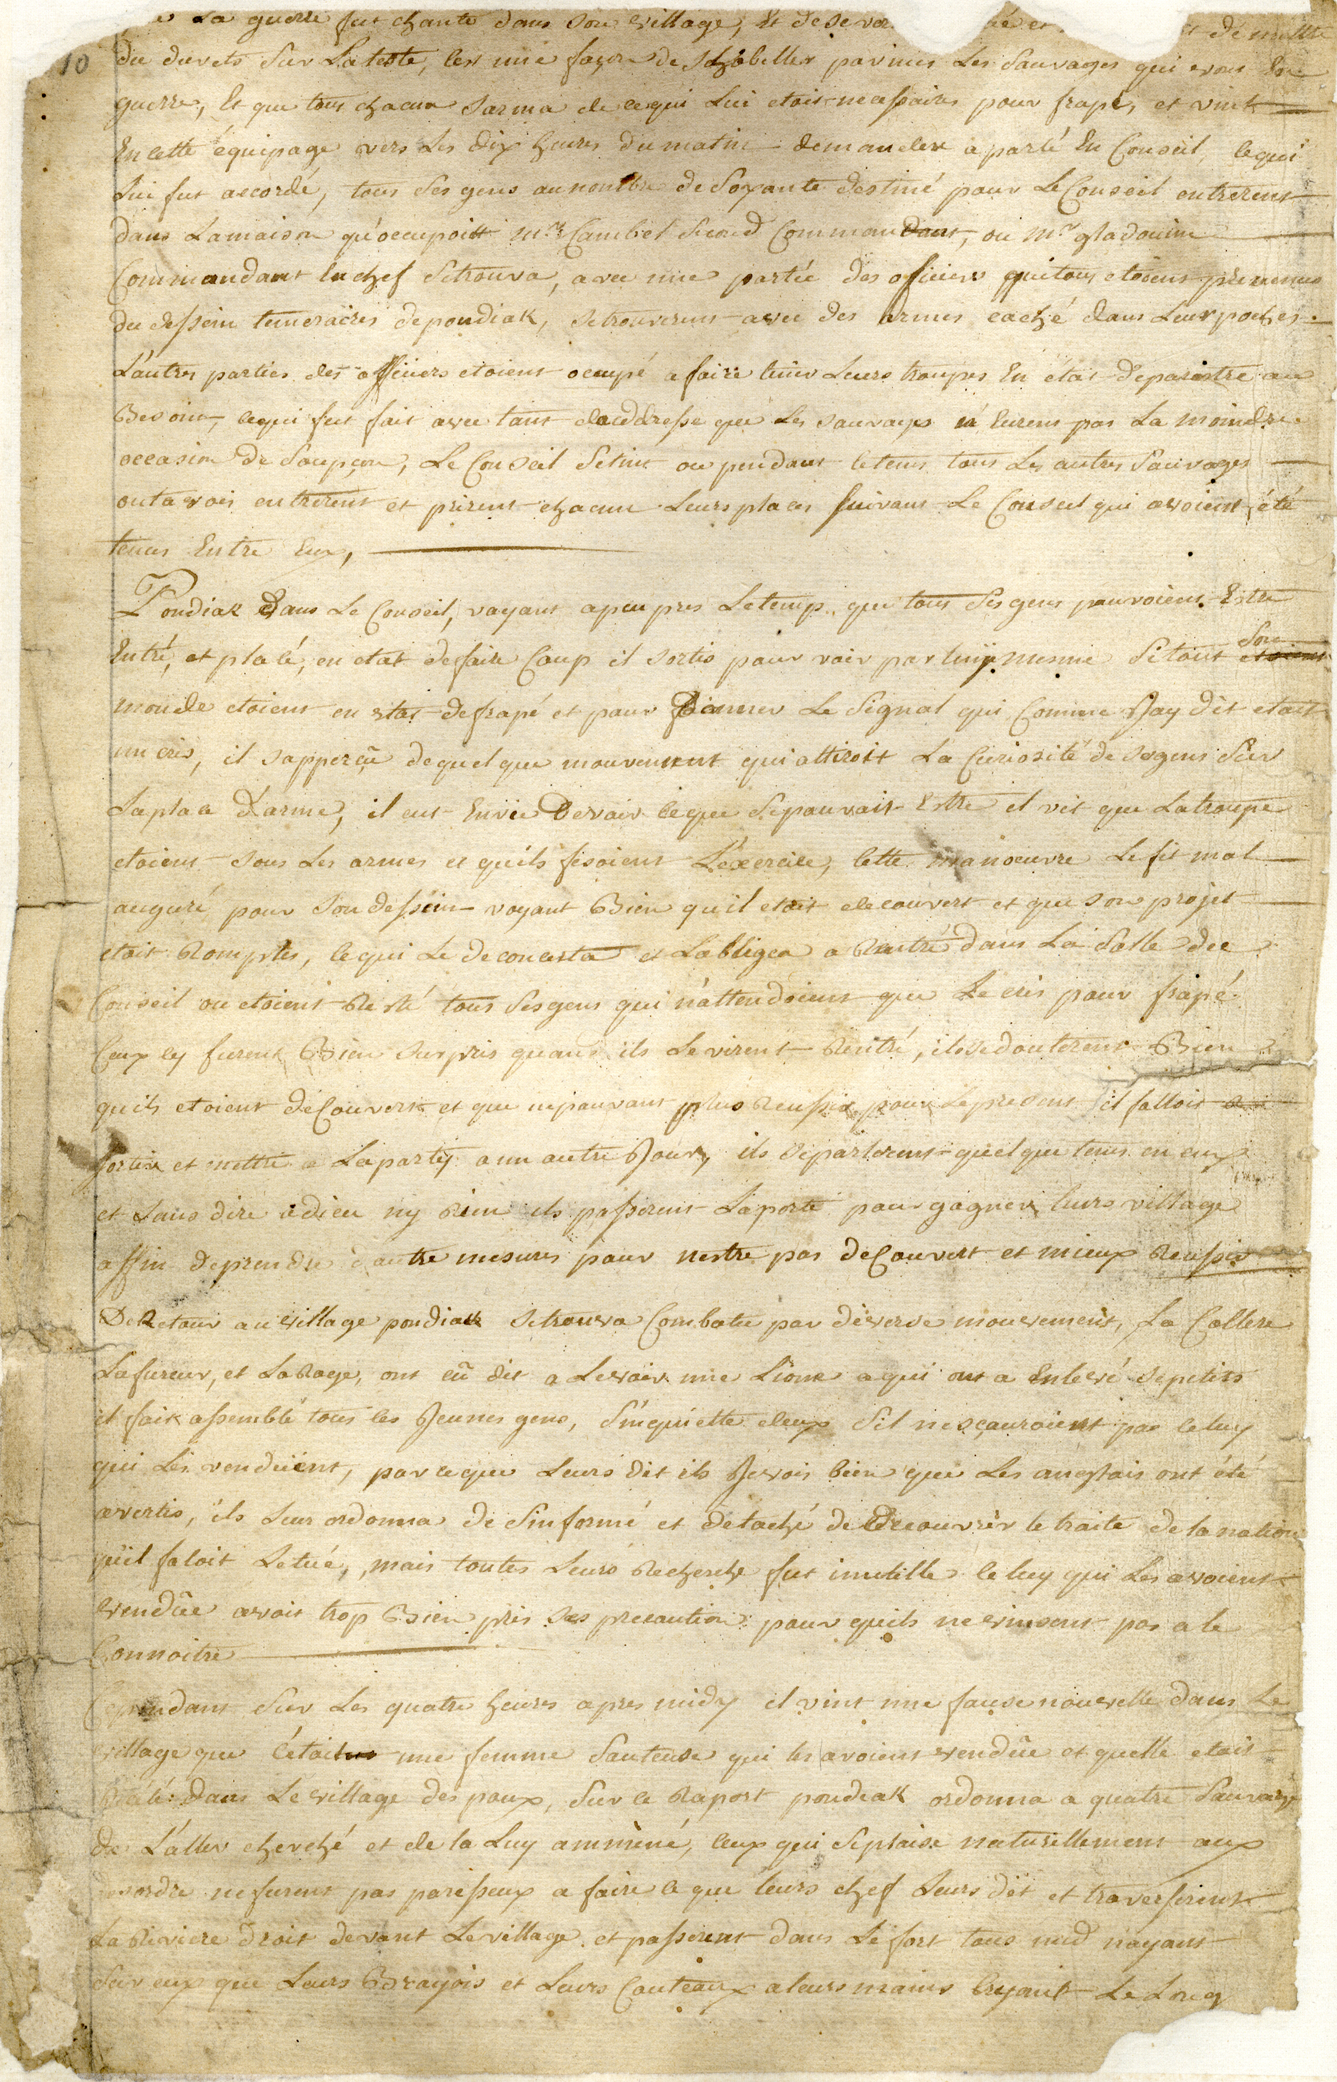 La guerre fut chanté dans son village, Et
10 du duvets Sur La teste, C'est une façon de s'habiller parmis Les Sauvages qui vons En
guerre, Et que tous chacun sarma de ce qui Lui etoit necessaire pour frapé, et vint
En cette équipage vers Les dix heures du matin demander a parlé En Conseil, ce qui
Lui fut accordé, tous Ses gens au nombre de Soixante destiné pour Le Conseil entrerent
dans La maison qu'occupoitt Mr. Cambel Second Commandant, ou Mr gladouine
Commandant En chef Se trouva, avec une partie des officiers qui tous etoient prevenus
du dessein temeraires de pondiak, Se trouverent avec des armes caché dans Leurs poches.
L'autres parties des officiers etoient ocupé a faire tenir Leurs troupes En état de paroistre au
Besoin, ce qui fut fait avec tant d'addresse que Les Sauvages n'Eurent pas La moindre
occasion de Soupçon, Le Conseil Se tint ou pendant le tems tous Les autres Sauvages
outavois entrerent et prirent chacun Leurs places Suivant Le Conseil qui avoient été
tenus Entre Eux,
Pondiak Dans Le Conseil, voyant a peu pres Le temp que tous Ses gens pouvoient Estre
Entré, et placé, en etat de faire Coup il sortis pour voir par luy mesme Si tout Son
monde etoient en etat de frapé et pour Donner Le Signal qui Comme Jay dit etait
un cris, il sapperçû de quelque mouvement qui attiroit La Curiosité de Ses gens Sur
La place D'arme, il eut Envie De voir ce que Se pouvait Estre et vit que La troupe
etoient Sous Les armes et quils fesoient L'éxercice, Cette manoeuvre Le fit mal
auguré pour Son dessein voyant Bien qu'il etoit decouvert et que Son projet
etoit Rompus, ce qui Le deconcerta et L'obligea a Rentré dans La Salle du
Conseil ou etoient Resté tous Ses gens qui n'attendoient que Le cris pour frapé.
Ceux cy furent Bien Surpris quand ils Le virent Rentré, ils se douterent Bien
quils etoient deCouvert et que ne pouvant plus Reussir pour Le present il falloit
sortir et mettre La partÿ a un autre Jour, ils Se parlerent quelque tems en eux
et Sans dire adieu ny Rien ils passerent La porte pour gagner Leurs village
affin de prendre d'autre mesures pour nestre pas deCouvert et mieux Reussir
De Retour au village pondiak Se trouva Combatu par diverse mouvement, La Collere
La fureur, et La Rage, ont eû dit a Le voir une Lione a qui ont a Enlevé Se petits
il fait assemblé tous les Jeunes gens, S'inquiette deux S'il ne sçauroient pas celuy
qui Les vendüent, parce que Leurs dit ils Je vois bien que Les anglais ont été
avertis, ils Leur ordonna de S'informé et detaché de Decouvrir le traite de la nation
qu'il faloit Le tué, mais toutes Leurs Recherche fut inutille celuy qui Les avoient
vendûe avoit trop Bien pris Ses precaution pour quils ne vinsent pas a le
Connoitre
Cependant Sur Les quatre heures apres midy il vint une fause nouvelle dans Le
village que C'étoit une femme Sauteuse qui les avoient vendûe et quelle etoit
dans Le village des poux, Sur ce Raport pondiak ordonna a quatre Sauvage
de L'aller cherché et de la Luy amméné, Ceux qui Se plaise naturellement aux
desordre ne furent pas paresseux a faire ce que leurs chef Leurs dit et traverserent
La Riviere droit devant Le village et passerent dans Le fort tous nud n'ayant
Sur eux que Leurs Brayois et Leurs Couteaux a leurs mains Cryant Le Long